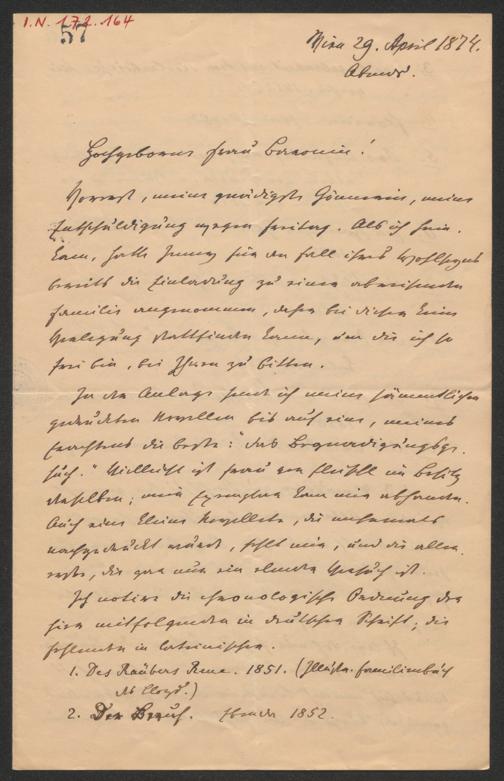 I.N. 172.164
57
Wien 29. April 1874.
Abends.
Hochgeborne Frau Baronin!
Vorerst, meine gnädigste Gönnerin, meine
Entschuldigung wegen Freitag. Als ich heim
kam, hatte Jenny für den Fall ihres Wohlseyns
bereits die Einladung zu einer abreisenden
Familie angenommen, daher bei diesen keine
Verlegung stattfinden kann, um die ich so
frei bin, bei Ihnen zu bitten.
In der Anlage sende ich meine sämmtlichen
gedruckten Novellen bis auf eine, meines
Erachtens die beste: "das Begnadigungsge-
such." Vielleicht ist Frau von Fleischl im Besitz
derselben; mein Exemplar kam mir abhanden.
Auch eine kleine Novellete, die mehrmals
nachgedruckt wurde, fehlt mir, und die aller-
erste, die gar nur ein elender Versuch ist.
Ich notire die chronologische Ordnung der
hier mitfolgenden in deutscher Schrift; die
fehlenden in lateinischer.
1. Des Räubers Reue. 1851. (Illustr. Familienbuch
des Lloyd.)
2. Der Beruf. Ebenda 1852.